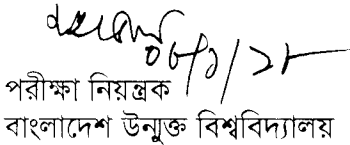 ০৮/১/১৮
পরীক্ষা নিয়ন্ত্রক
বাংলাদেশ উন্মুক্ত বিশ্ববিদ্যালয়